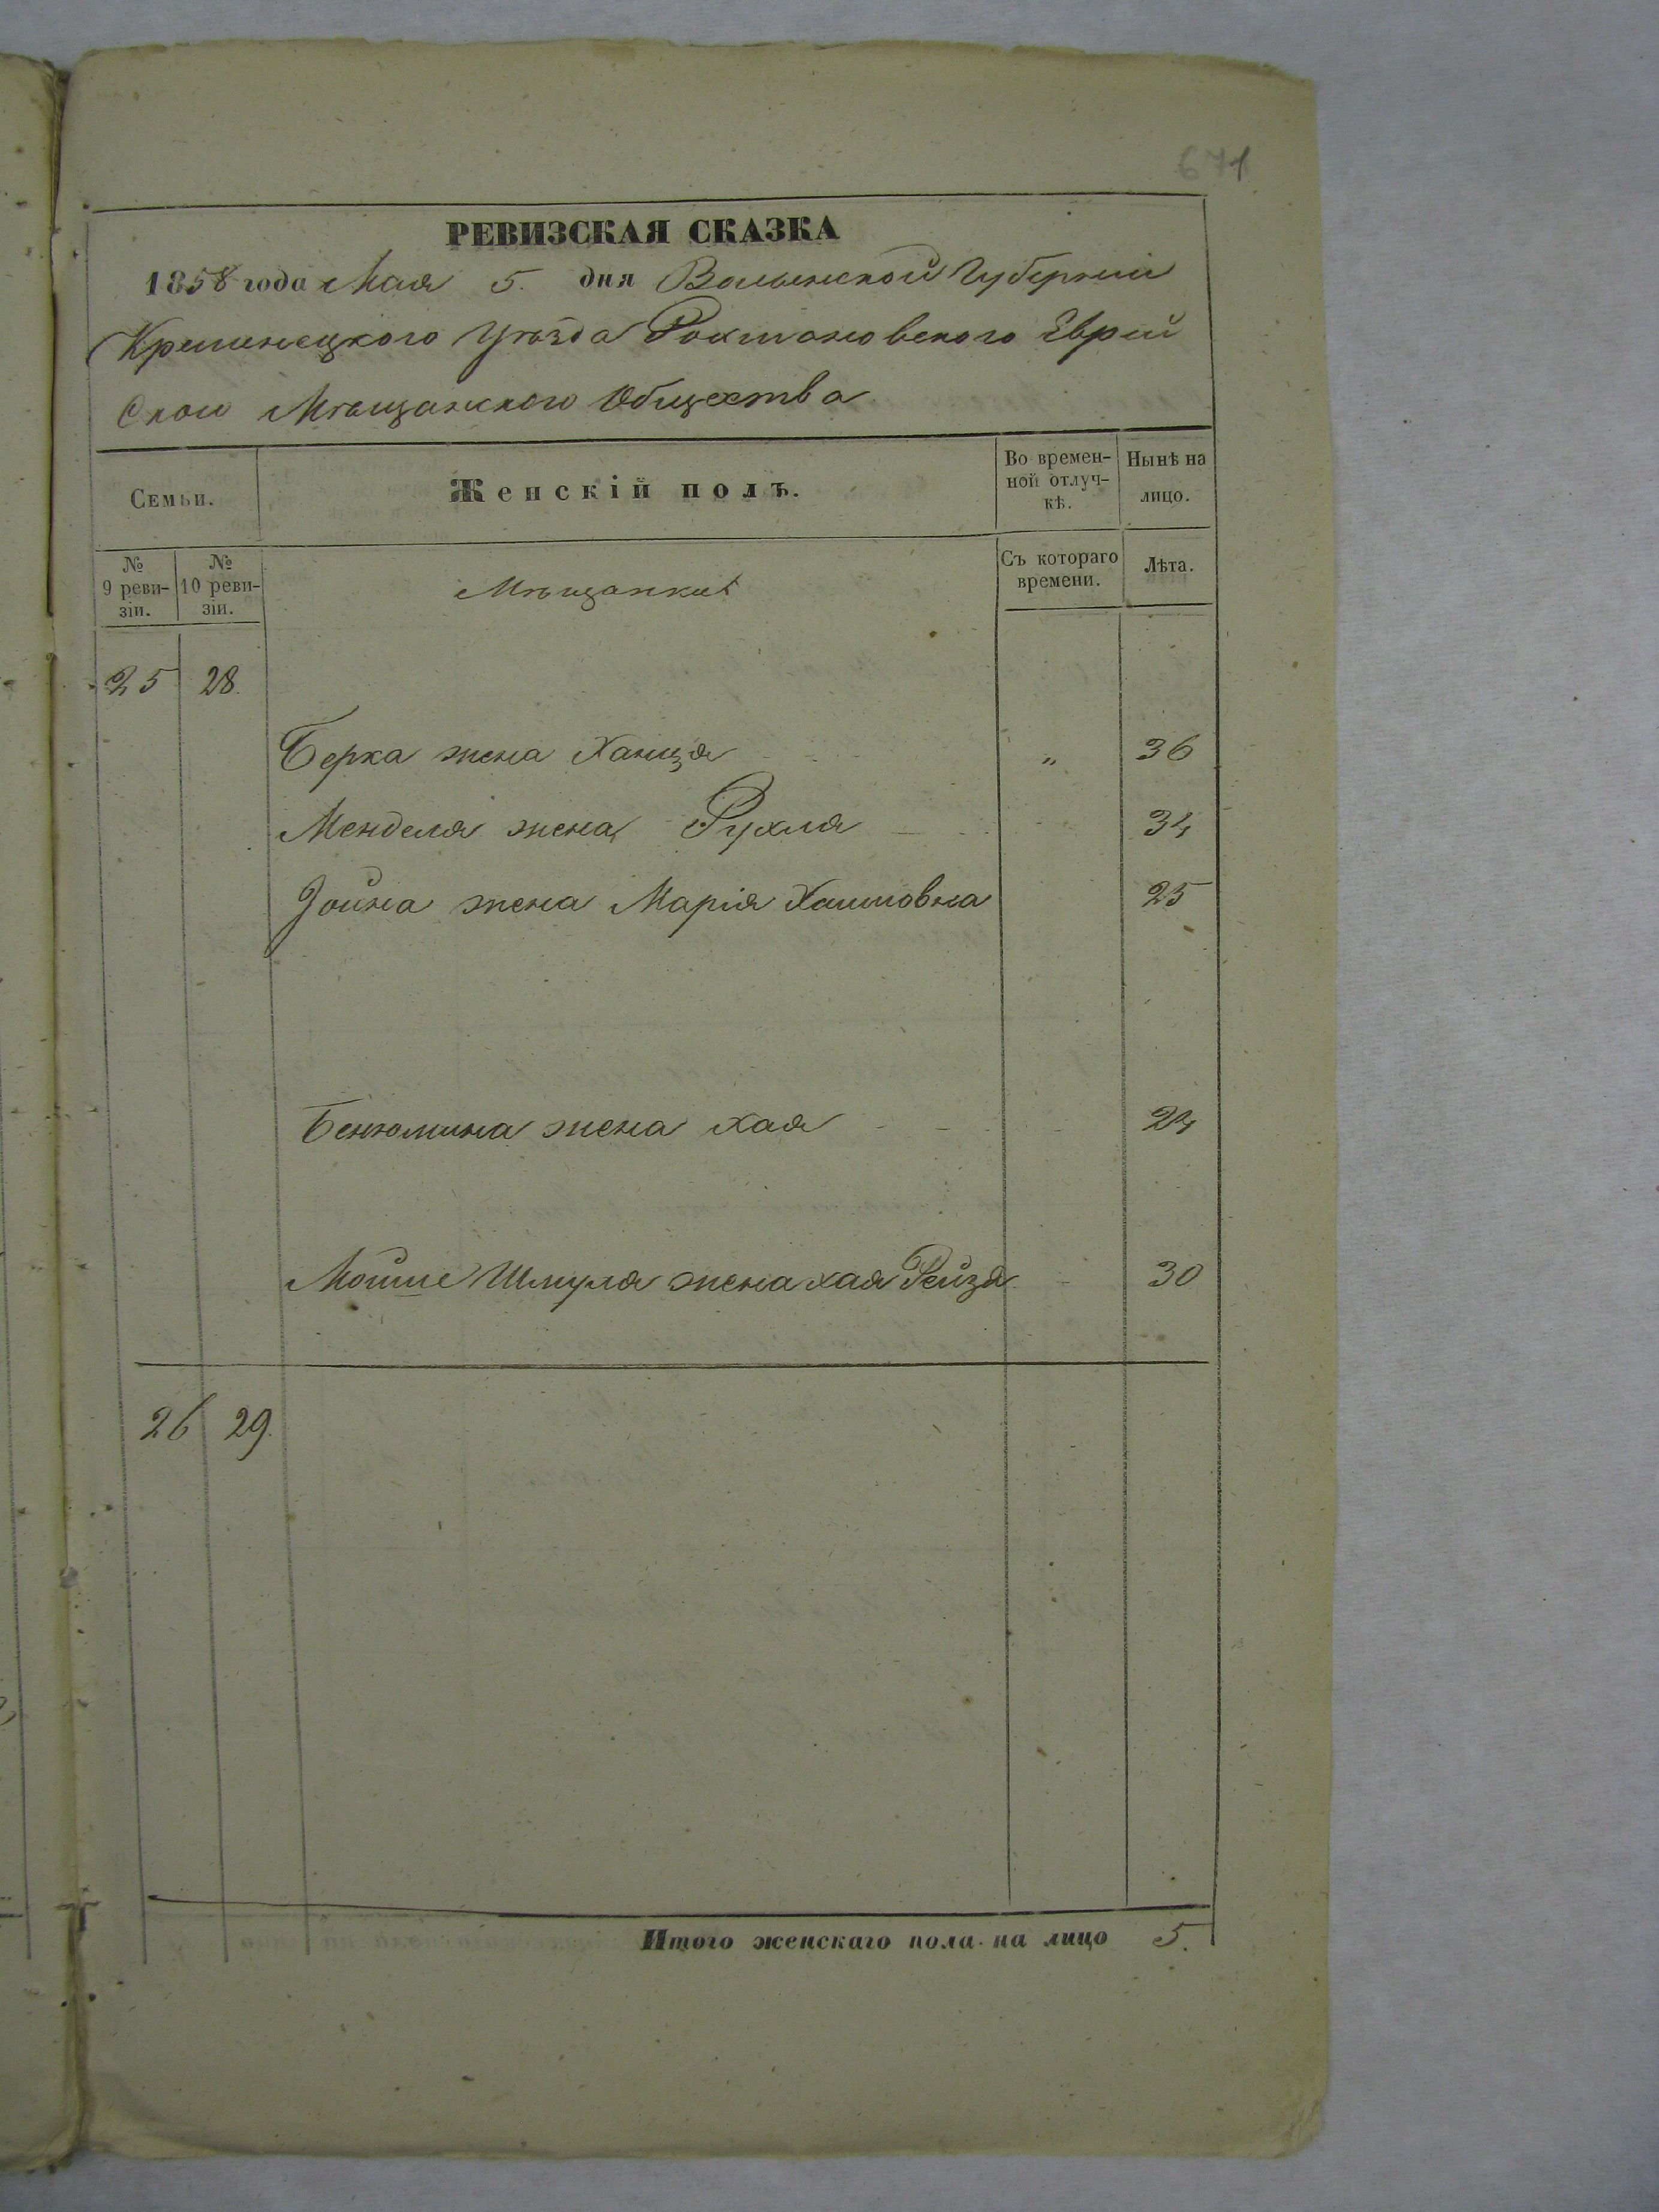 671
РЕВИЗСКАЯ СКАЗКА
1858 года Мая 5. дня Волынской Губерніи
Кременецкого Уѣзда Рохмановского Еврей
Ского Мѣщанского Общества
Семьи.
Женскій полъ.
Во времен-
ной отлуч-
кѣ.
Нынѣ на
лицо.
№
9 реви-
зіи.
№
10 реви-
зіи.
Мѣщанки
Съ котораго
времени.
Лѣта.
25 28.
Берка жена Ханця " 36
Менделя жена Рухля 34
Іойна жена Марія Хаимовна 25
Бенюмина жена хая 24
Мошие Шмуля жена хая Рейзя 30
26 29.
Итого женскаго пола на лицо 5.